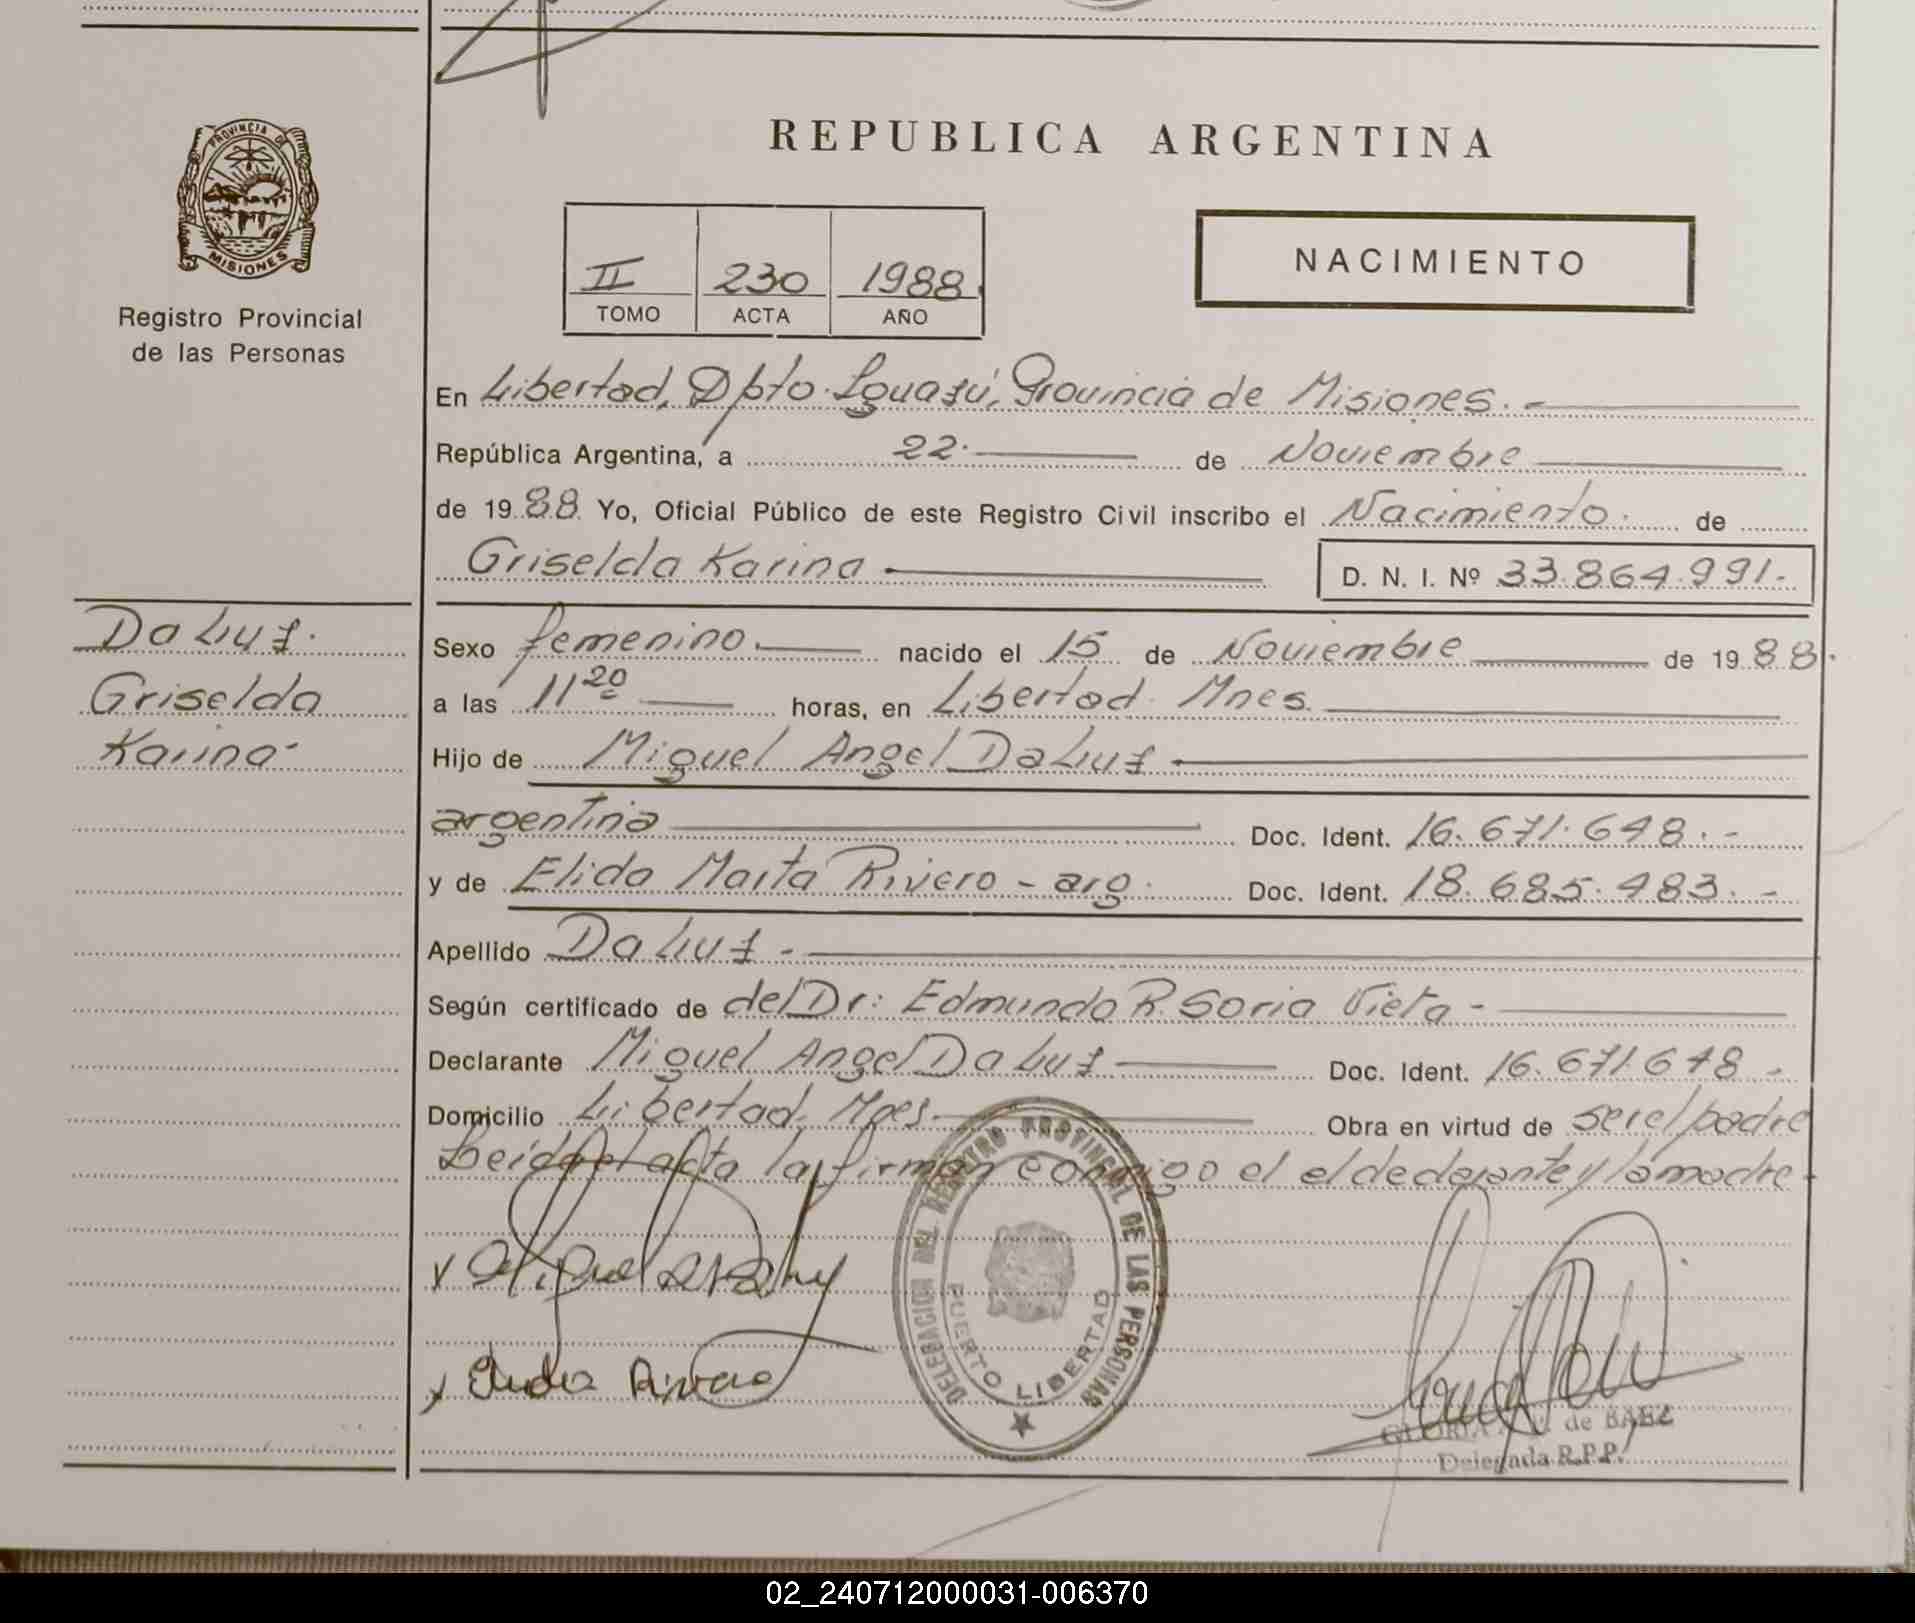 REPUBLICA ARGENTINA
PROVINCIA DE MISIONES
Registro Provincial
de las Personas
II 230 1988.
TOMO ACTA AÑO
NACIMIENTO
En Libertad, Dpto. Iguazú, Provincia de Misiones. -
República Argentina, a 22. de Noviembre
de 1988. Yo, Oficial Público de este Registro Civil inscribo el Nacimiento. de
Griselda Karina D. N. I. Nº 33.864.991.-
Da Luz.
Griselda
Karina
Sexo femenino. nacido el 15 de Noviembre de 1988.
a las 11 20 horas, en Libertad Mnes.
Hijo de Miguel Angel Da Luz
argentina Doc. Ident. 16.671.648.-
y de Elida Marta Rivero - arg. Doc. Ident. 18.685.483.-
Apellido Da Luz -
Según certificado de del Dr: Edmundo R. Soria Vieta -
Declarante Miguel Angel Da Luz Doc. Ident. 16.671.648 -
Domicilio Libertad, Mnes. Obra en virtud de ser el padre
Leida el acta la firman conmigo el el declarante y la madre -
DELEGACION DEL REGISTRO PROVINCIAL DE LAS PERSONAS
PUERTO LIBERTAD
Rivero
GLORIA de BAEZ
Delegada R.P.P.
02_240712000031-006370